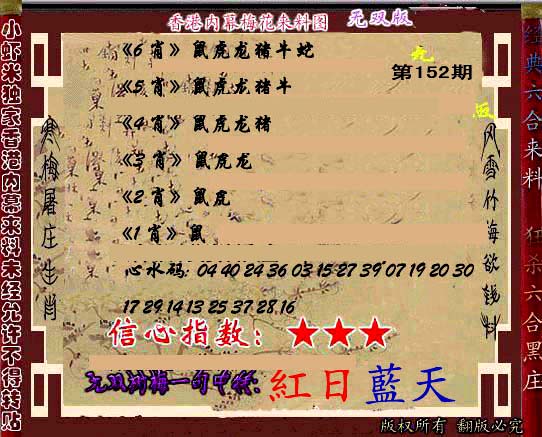 香港内幕梅花来料图 无双版
小虾米独家香港内幕来料未经允许不得转贴
经典六合来料 狂杀六合黑庄
九
版
第152期
《6肖》鼠虎龙猪牛蛇
《5肖》鼠虎龙猪牛
《4肖》鼠虎龙猪
《3肖》鼠虎龙
《2肖》鼠虎
《1肖》鼠
心水码: 04 40 24 36 03 15 27 39 07 19 20 30
17 29 14 13 25 37 28 16
寒梅屠庄生肖
风雪竹海欲钱料
信心指数: ★★★
紅日藍天
版权所有 翻版必究